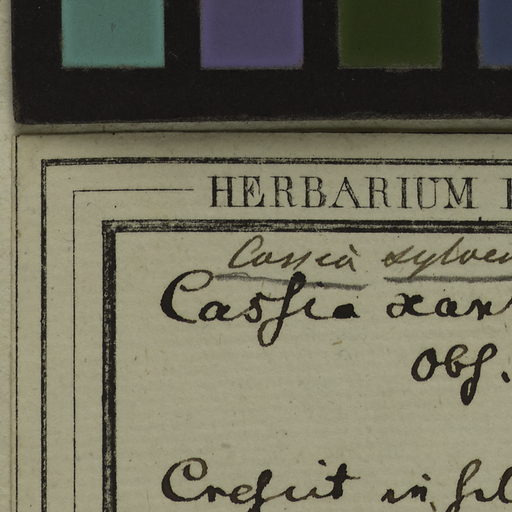 HERBARIUM
Cassia sylves
Caſsia xant
Obſ.
Creſcit in ſil